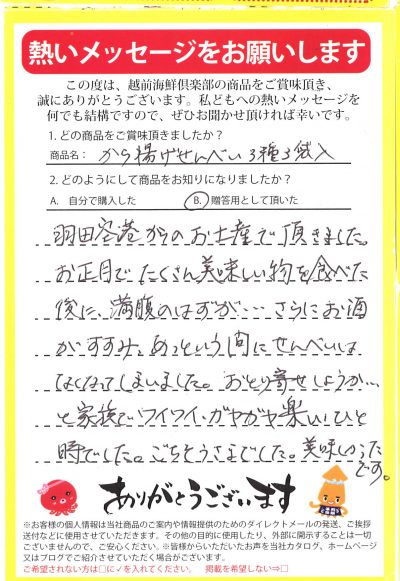 熱いメッセージをお願いします
この度は、越前海鮮倶楽部の商品をご賞味頂き、
誠にありがとうございます。私どもへの熱いメッセージを
何でも結構ですので、ぜひお聞かせ頂ければ幸いです。
1. どの商品をご賞味頂きましたか?
商品名: から揚げせんべい3種3袋入
2. どのようにして商品をお知りになりましたか?
A. 自分で購入した B. 贈答用として頂いた
羽田空港からのお土産で頂きました。
お正月でたくさん美味しい物を食べた
後に、満腹のはずが…さらにお酒
がすすみ、あっという間にせんべいは
なくなってしまいました。おとり寄せしようか…
と家族でワイワイ・ガヤガヤ楽しいひと
時でした。ごちそうさまでした。美味しかった
です。
ありがとうございます
※お客様の個人情報は当社商品のご案内や情報提供のためのダイレクトメールの発送、ご挨拶
送付などに使用させていただきます。その他の目的に使用したり、外部に開示することは一切
ございませんので、ご安心ください。※皆様からいただいたお声を当社カタログ、ホームページ
又はブログでご紹介させていただく場合がございます。
ご希望されない方は□に✓を入れてください。 掲載を希望しない⇒□